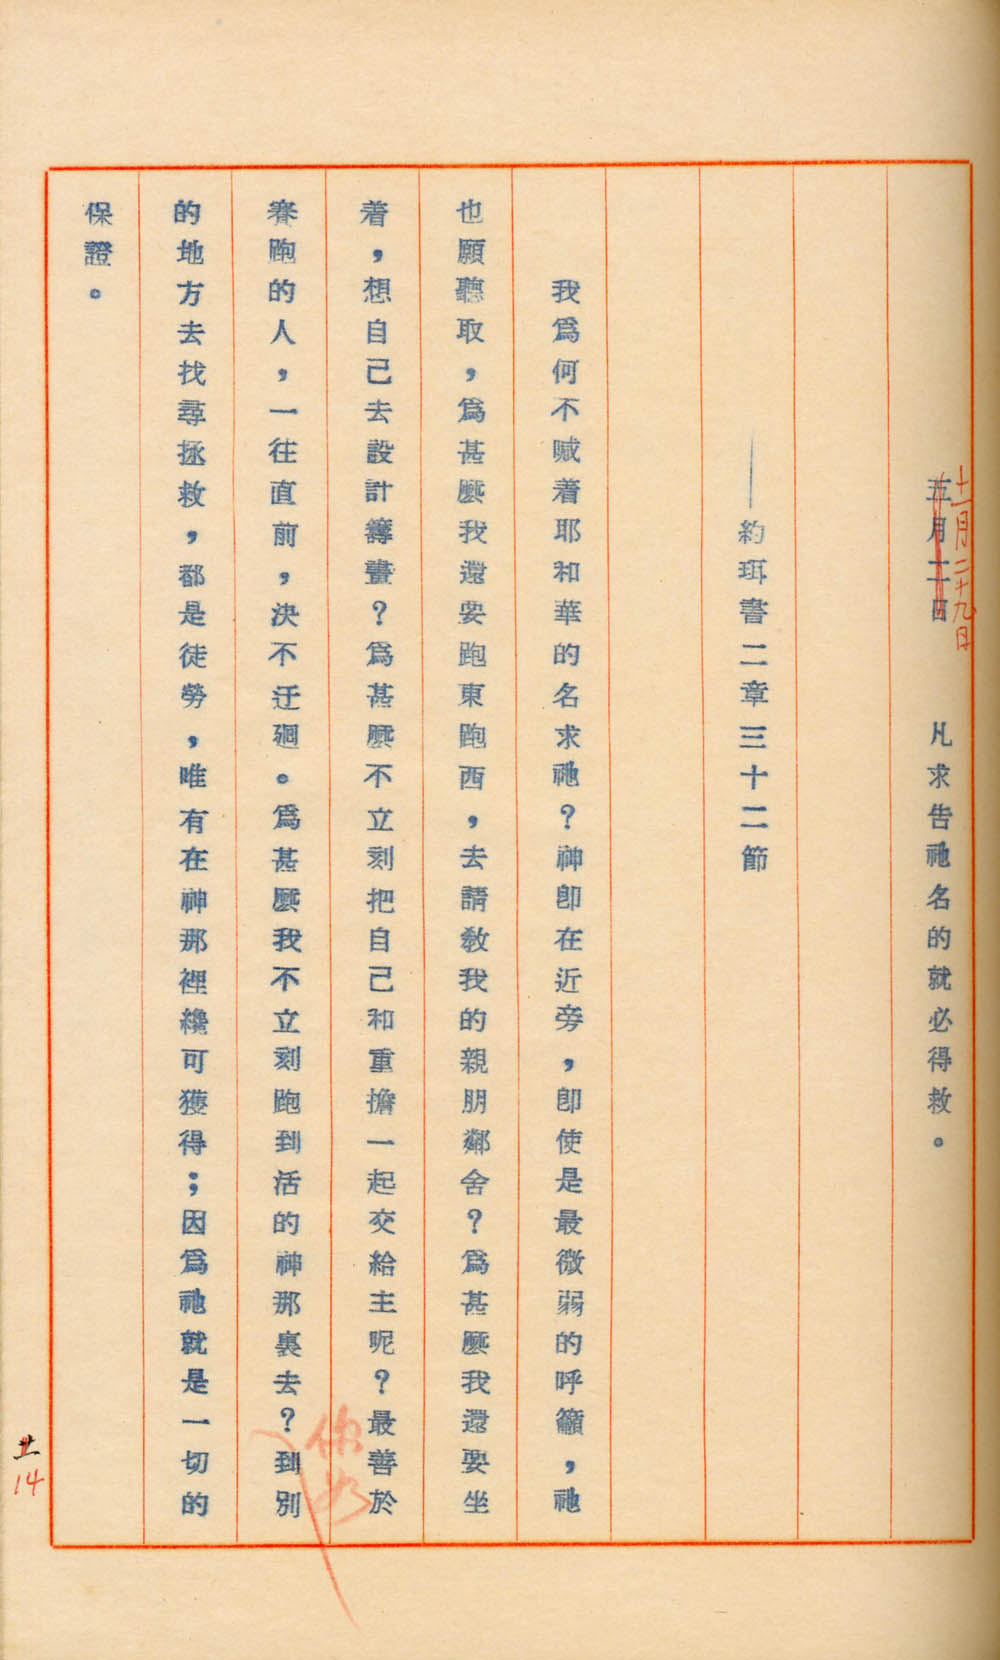 十一月二十九日
五月二十日　凡求告祂名的就必得救。
——約珥書二章三十二節
我爲何不喊着耶和華的名求祂？神卽在近旁，卽使是最微弱的呼籲，祂
也願聽取，爲甚麼我還要跑東跑西，去請敎我的親朋鄰舍？爲甚麼我還要坐
着，想自己去設計籌畫？爲甚麼不立刻把自己和重擔一起交給主呢？最善於
賽跑的人，一往直前，決不迂廻。爲甚麼我不立刻跑到活的神那裏去？到別
你若
的地方去找尋拯救，都是徒勞，唯有在神那裡纔可獲得；因爲祂就是一切的
保證。
14